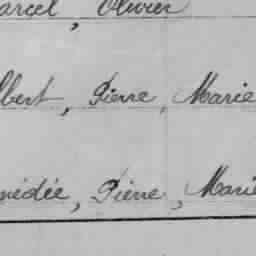 arcel, Olivier
lbert, Pierre, Marie
médée, Pierre, Marie